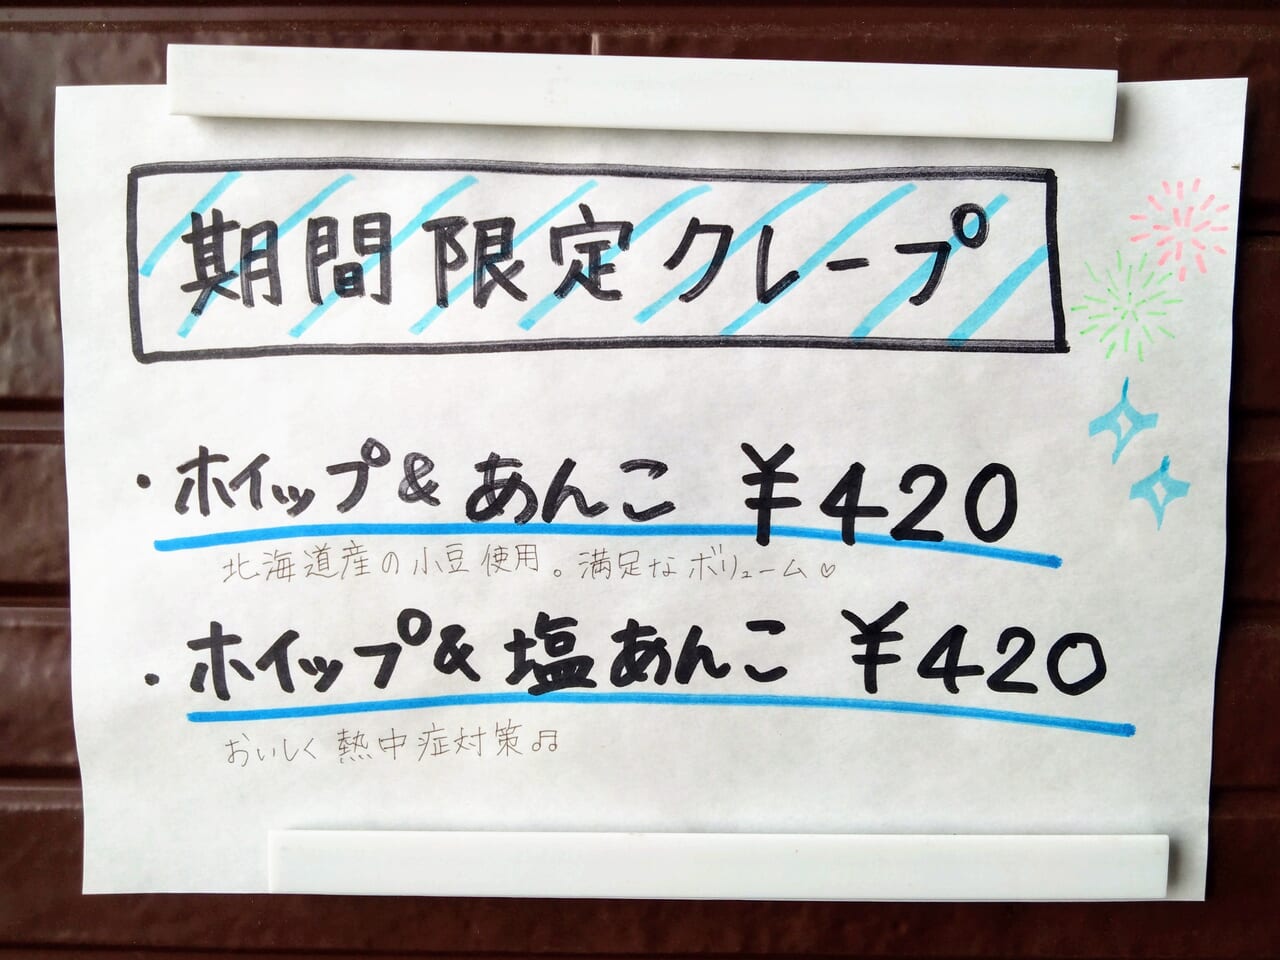 期間限定クレープ
・ホイップ&あんこ ¥420
北海道産の小豆使用。満足なボリューム♡
・ホイップ&塩あんこ ¥420
おいしく熱中症対策♫